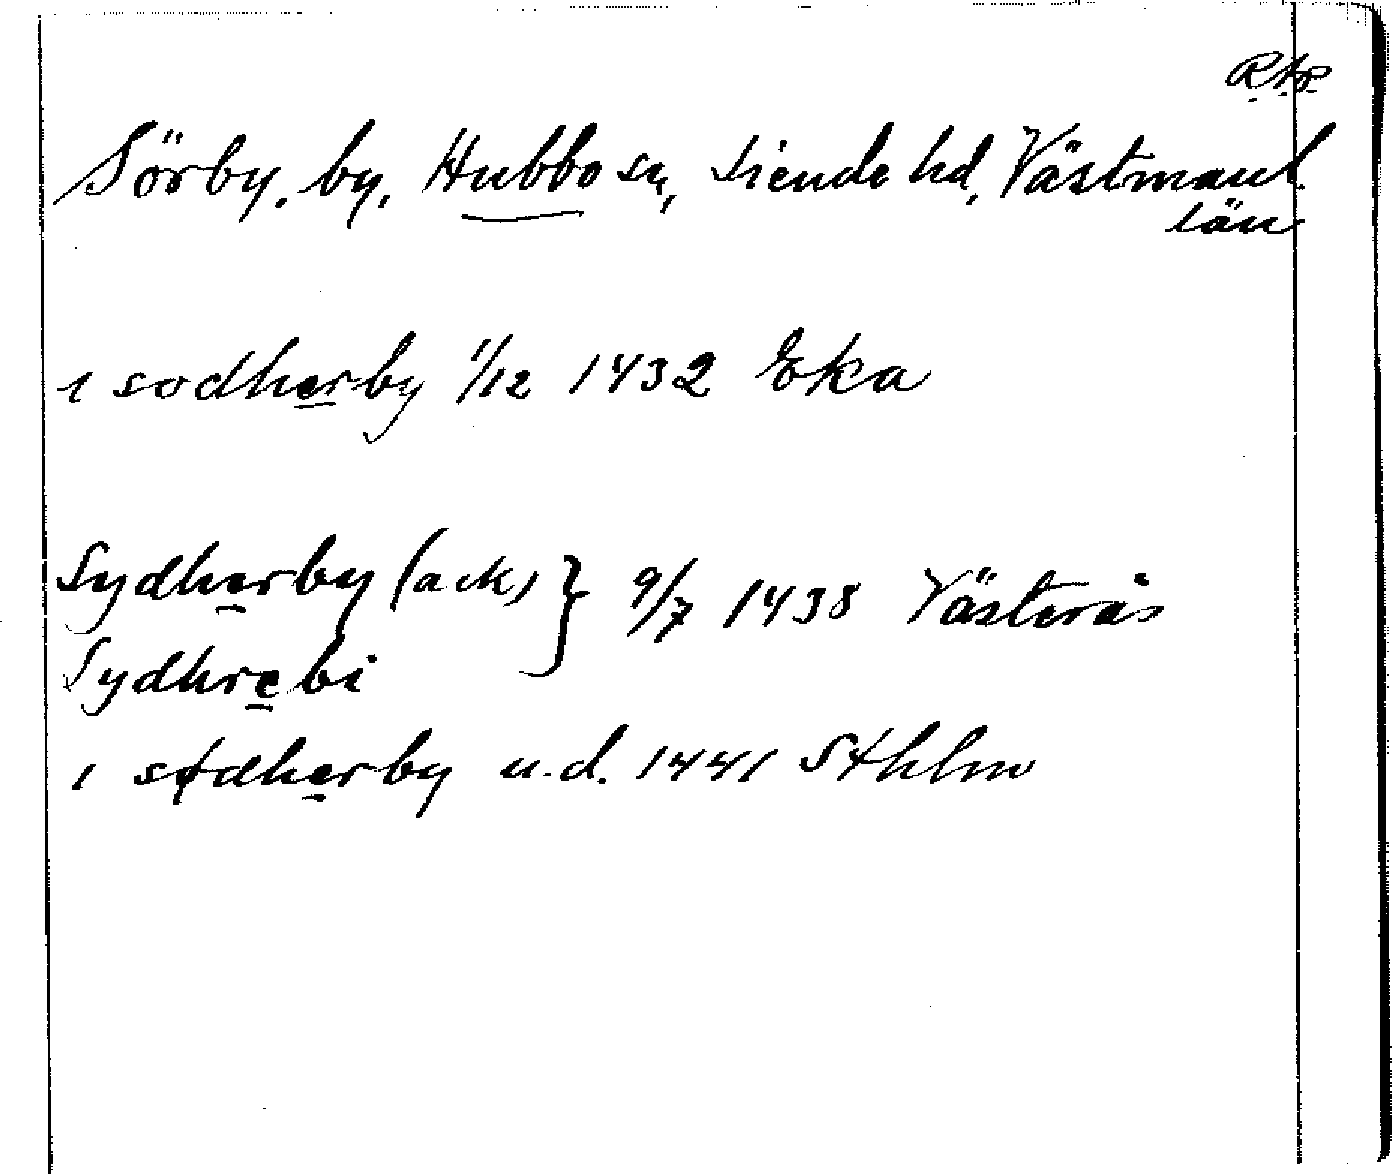 RAP
Sörby, by, Hubbo sn, Siende hd, Västmanl.
län
i sodherby 1/12 1432 Eka
Sydherby (ack) } 9/7 1438 Västerås
Sydhrebi
i sødherby u.d. 1441 Sthlm